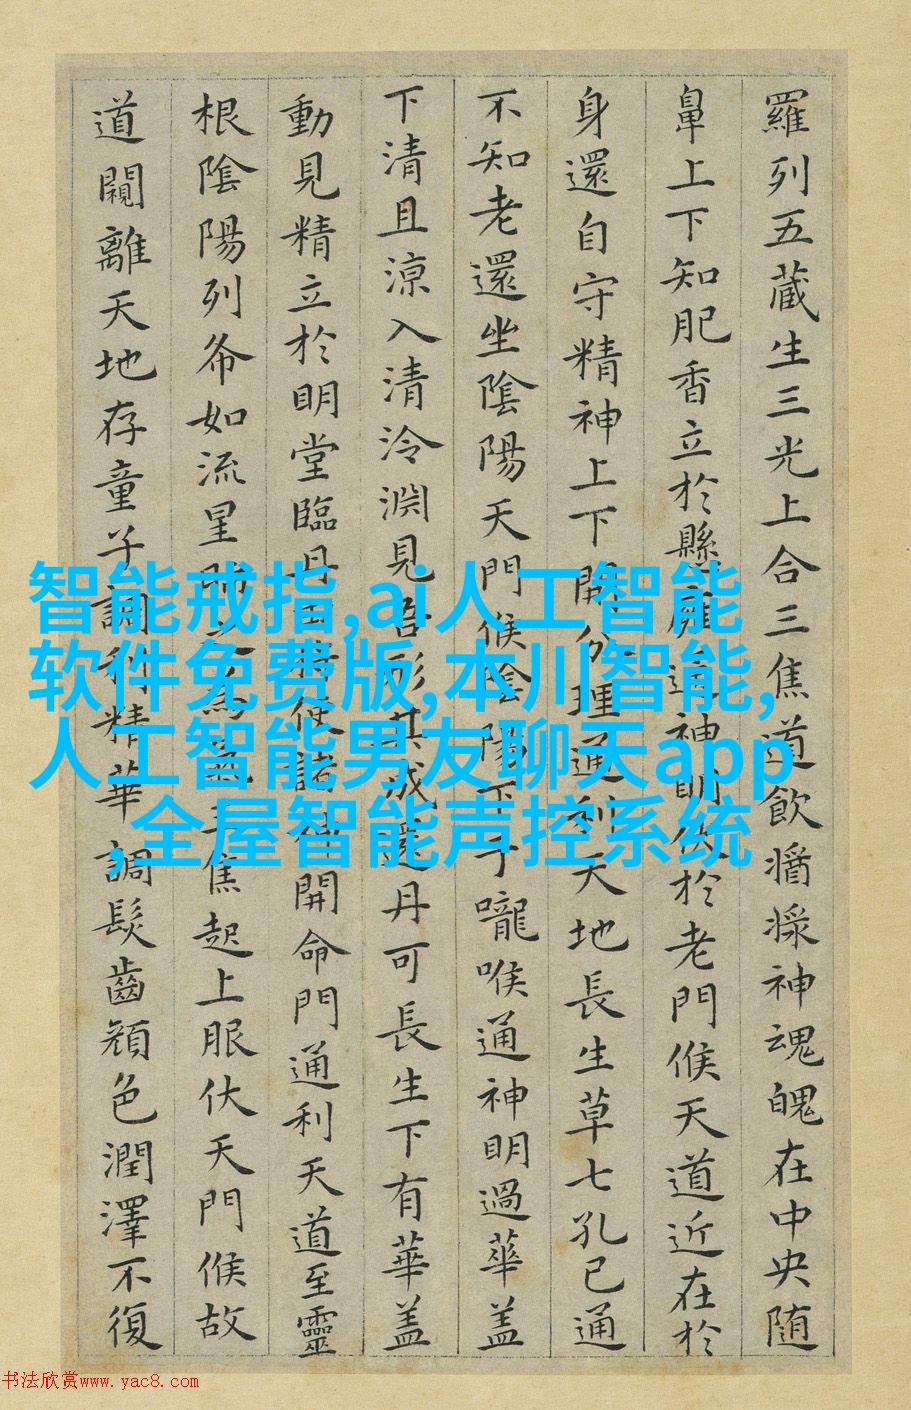 羅列五藏生三光上合三焦道飲醬漿神魂魄在中央随
鼻上下知肥香立於懸雍通神明伏於老門候天道近在於
身還自守精神上下開分理通利天地長生草七孔已通
不知老還坐陰陽天門候陰陽下于嚨喉通神明過華盖
下清且涼入清泠淵見吾形其成還丹可長生下有華盖
動見精立於明堂臨丹田將使諸神開命門通利天道至靈
根陰陽列布如流星肺之為氣三焦起上服伏天門候故
道闚離天地存童子調利精華調髮齒顔色潤澤不復
智能戒指,ai人工智能
软件免费版,本川智能,
人工智能男友聊天app
,全屋智能声控系统
书法欣赏www.yac8.com